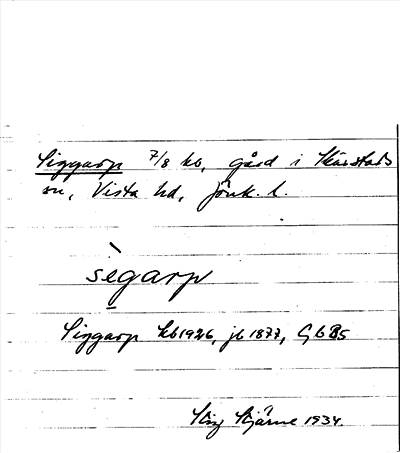 Siggarp 7/8 kb, gård i Skärstads
sn, Vista hd, Jönk. l.
sègarp
Siggarp kb 1926, jb 1877, GbB5
Stig Stjärne 1934.